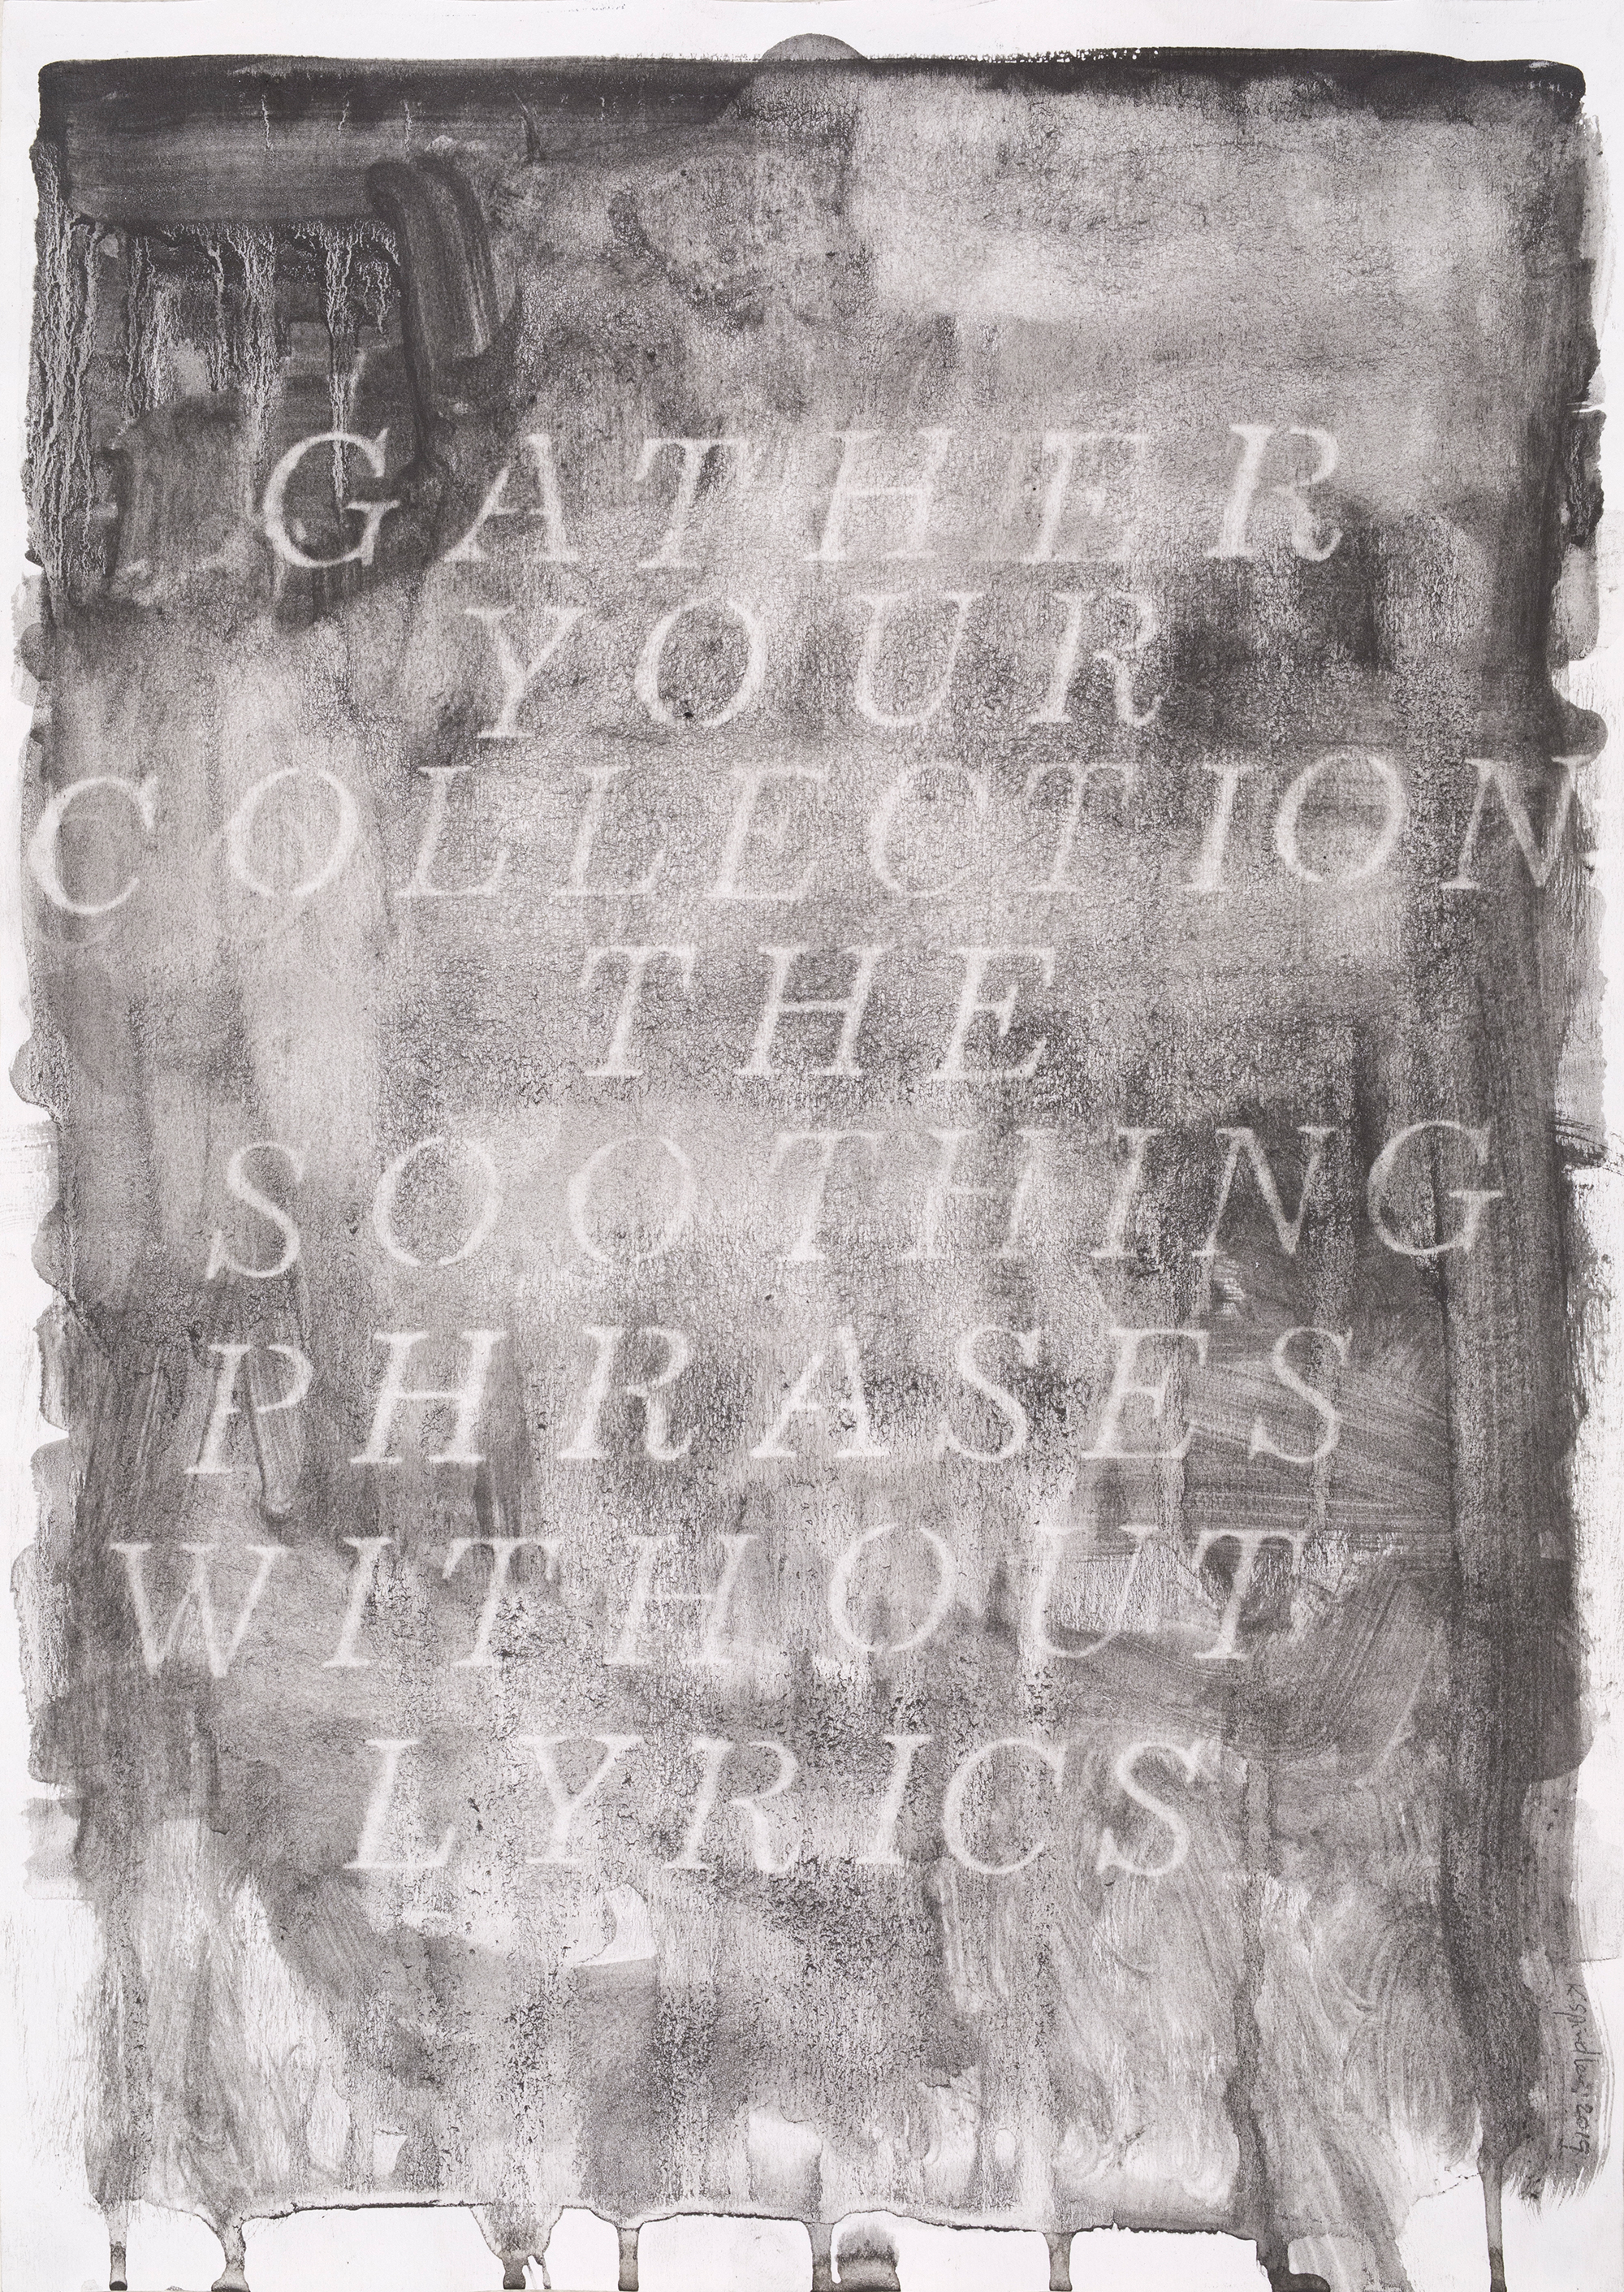 GATHER
YOUR
COLLECTION
THE
SOOTHING
PHRASES
WITHOUT
LYRICS
KSpindler 2019